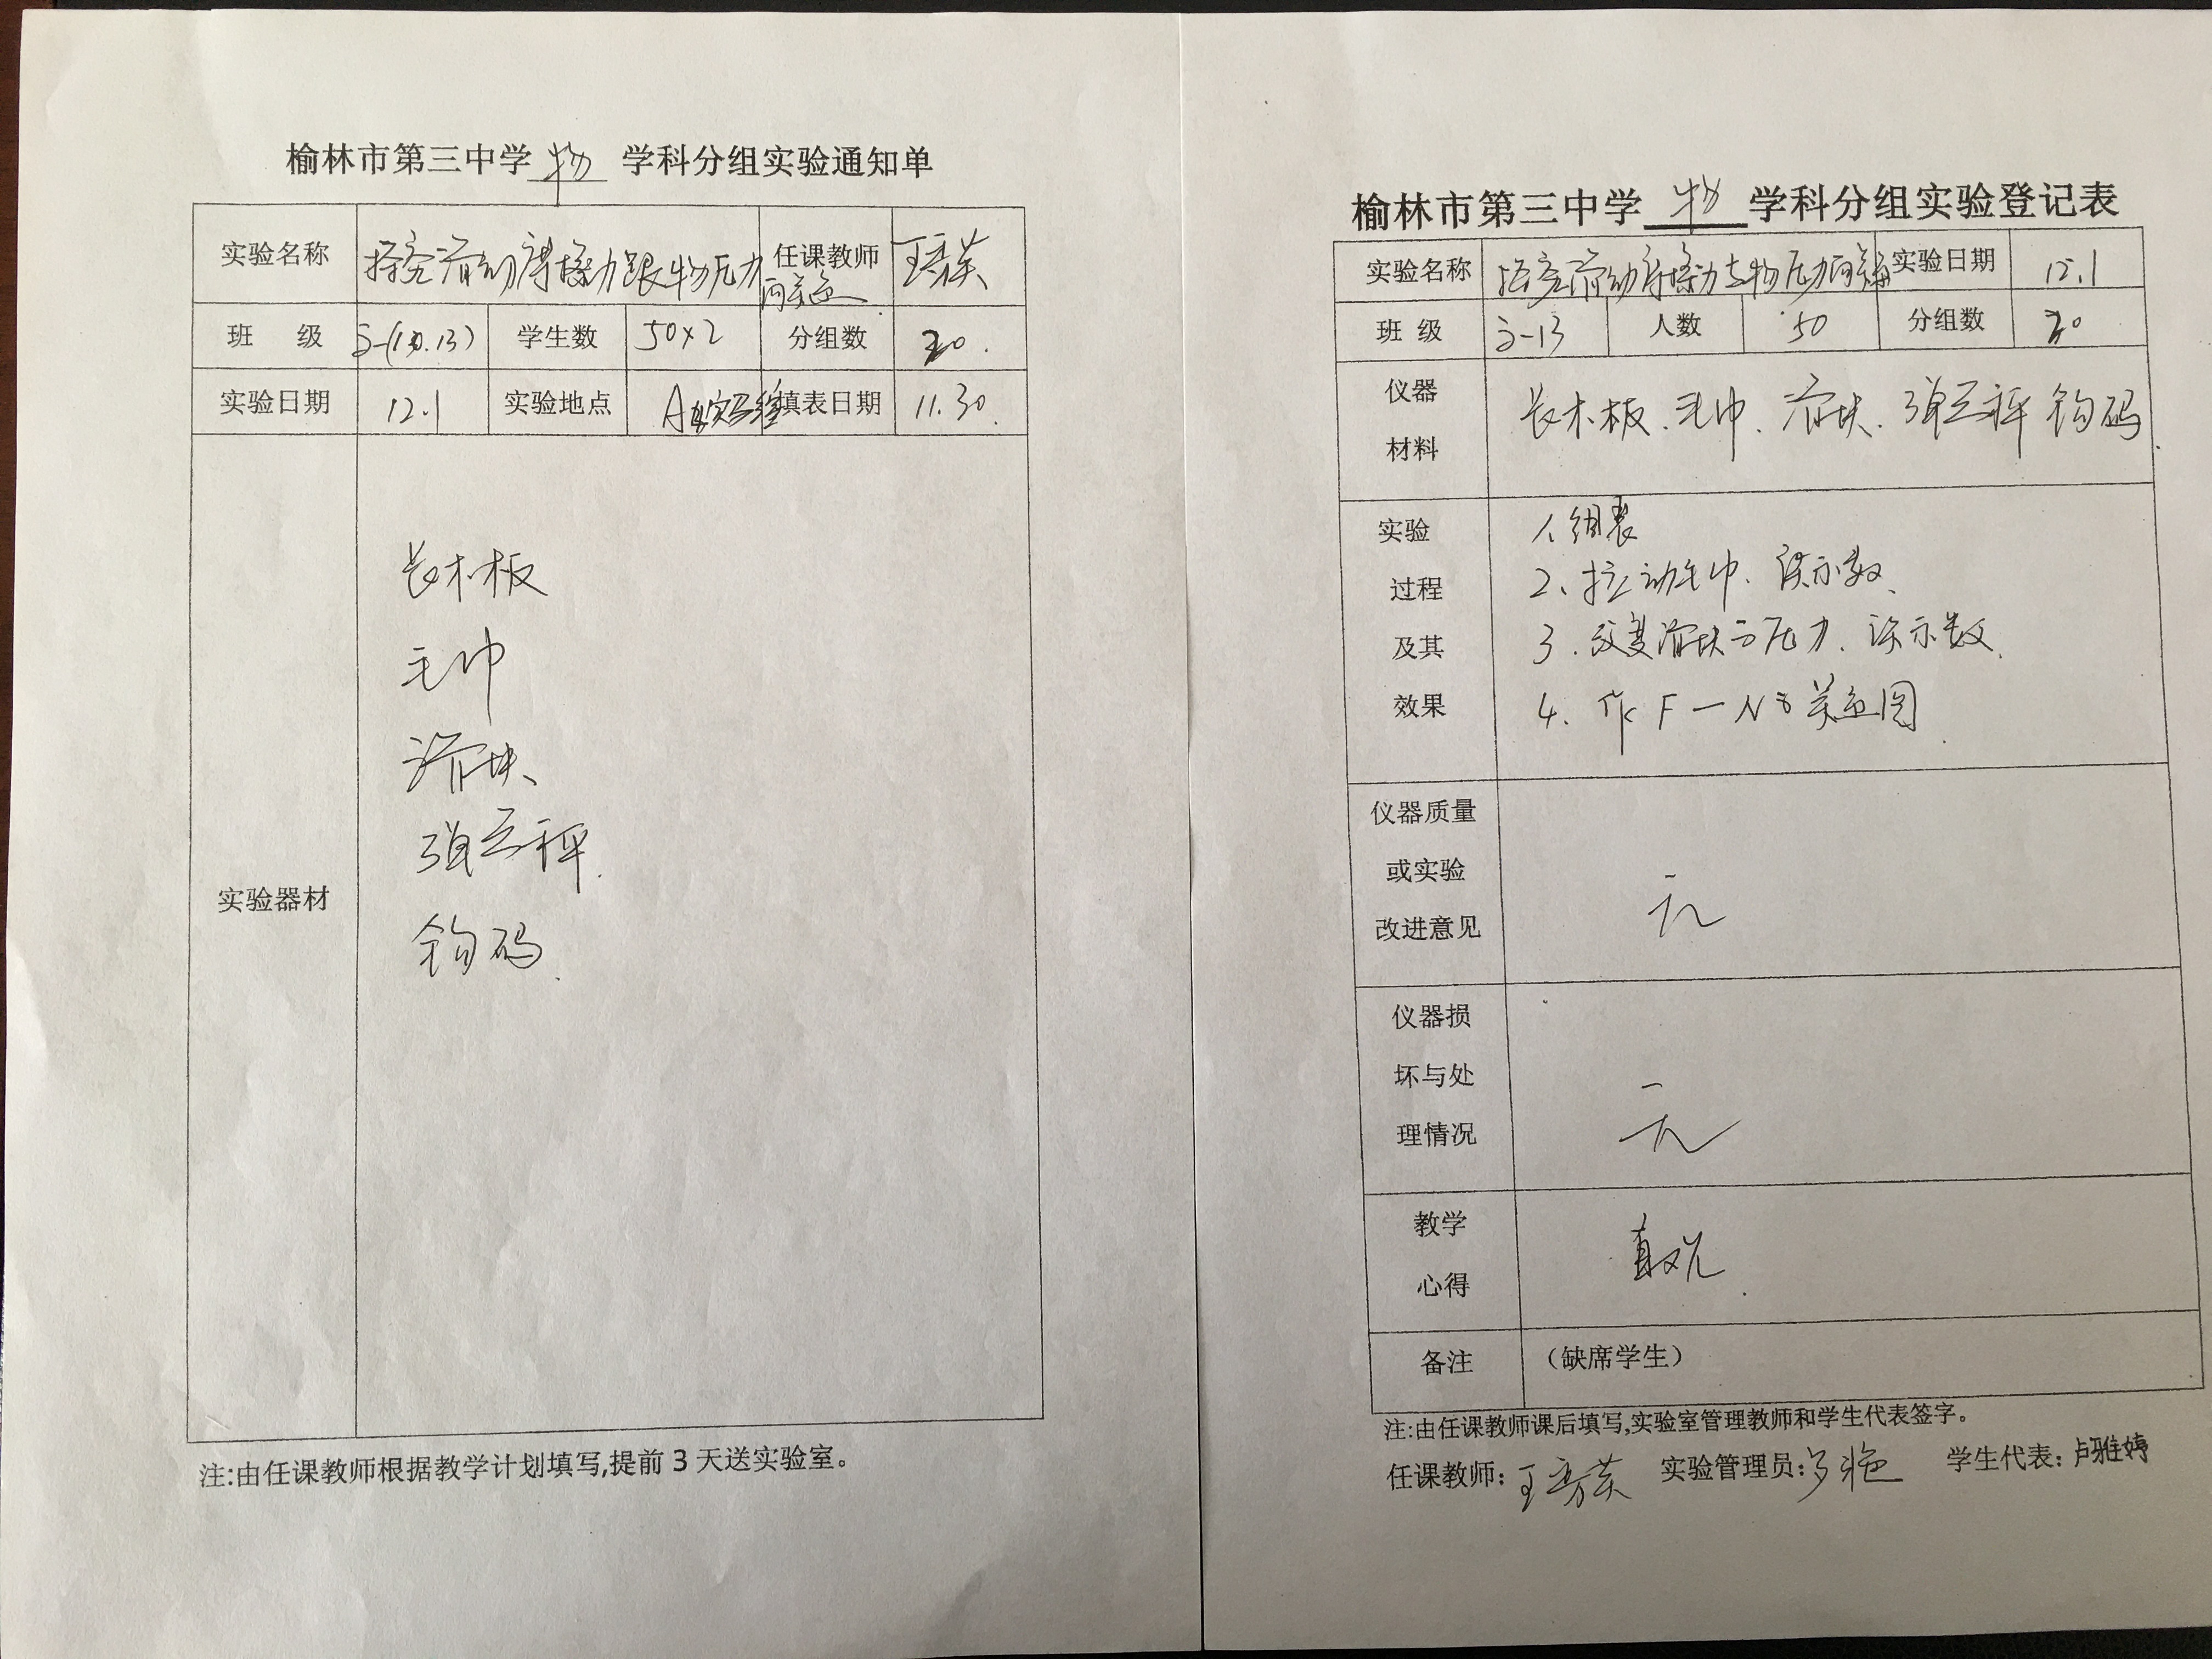 榆林市第三中学 物 学科分组实验通知单
实验名称 探究滑动摩擦力跟物压力的关系 任课教师 王秀英
班 级 高一(10.13) 学生数 50×2 分组数 20.
实验日期 12.1 实验地点 填表日期 11.30.
实验器材
长木板
毛巾
滑块、
弹簧秤.
钩码.
注:由任课教师根据教学计划填写,提前3天送实验室。
榆林市第三中学 物 学科分组实验登记表
实验名称 探究滑动摩擦力与物压力的关系 实验日期 12.1
班 级 高一13 人数 50 分组数 20
仪器材料 长木板.毛巾.滑块.弹簧秤 钩码.
实验过程及其效果
1、组装
2、拉动毛巾.读示数、
3.改变滑块的压力.读示数、
4.作F—N的关系图
仪器质量或实验改进意见 无
仪器损坏与处理情况 无
教学心得 直观.
备注 (缺席学生)
注:由任课教师课后填写,实验室管理教师和学生代表签字。
任课教师: 王秀英 实验管理员: 学生代表: 卢雅婷